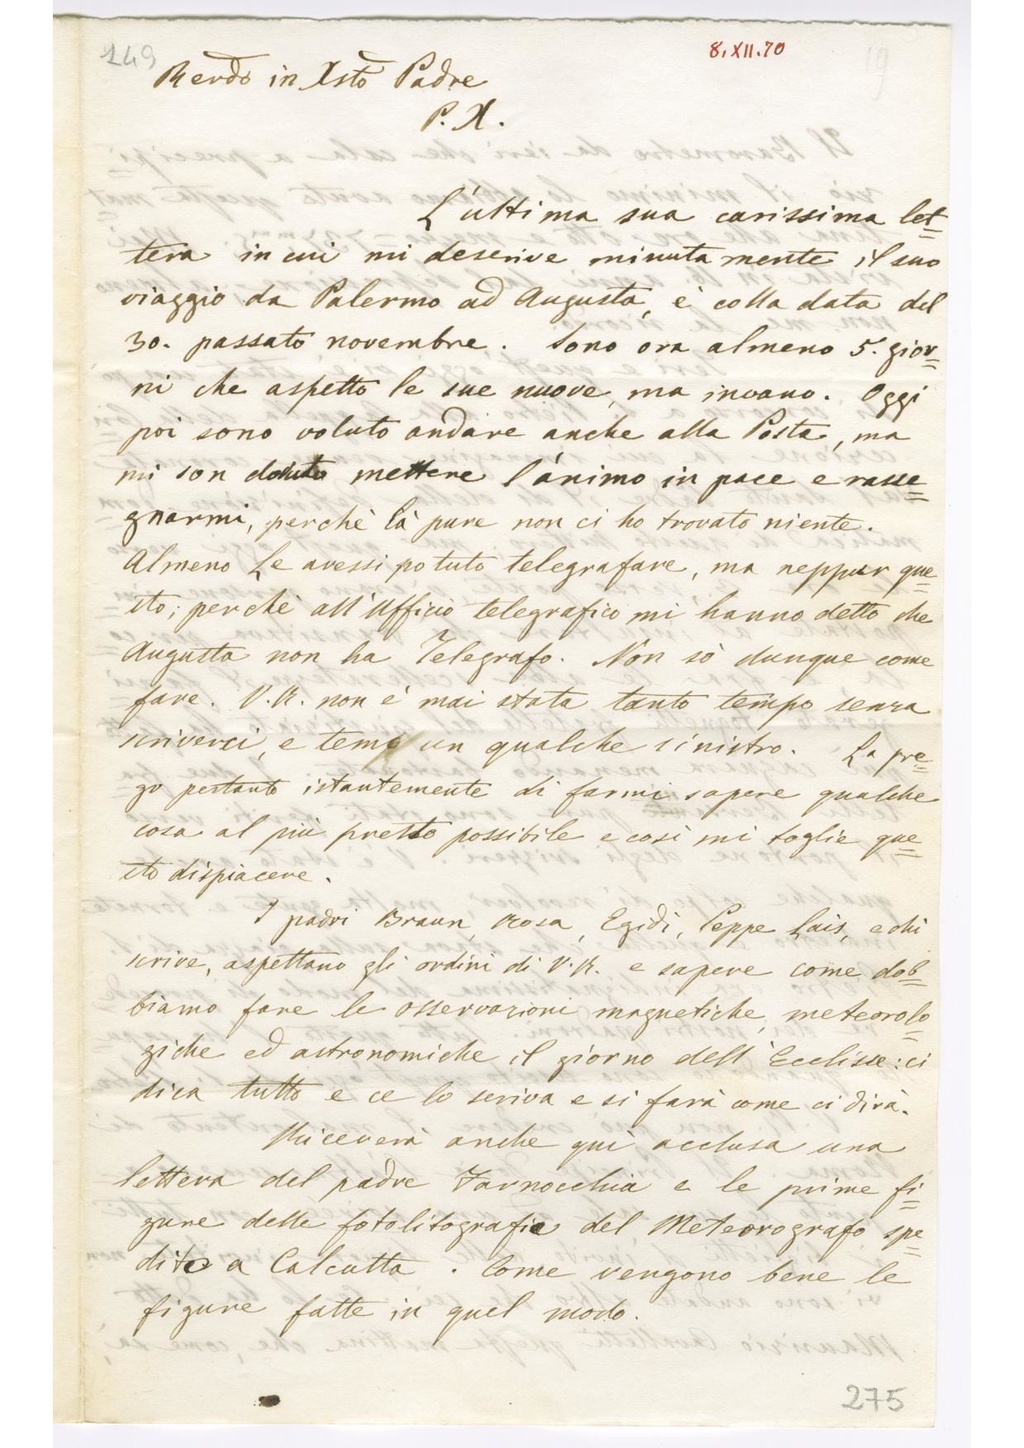 149
8.XII.70
19
Rendo in Xsto Padre
P. X.
L'ultima sua carissima let=
tera in cui mi descrive minutamente il suo
viaggio da Palermo ad Augusta, è colla data del
30. passato novembre. Sono ora almeno 5. gior=
ni che aspetto le sue nuove, ma invano. Oggi
poi sono voluto andare anche alla Posta, ma
mi son dovuto mettere l'ánimo in pace e rasse=
gnarmi, perchè là pure non ci ho trovato niente.
Almeno Le avessi potuto telegrafare, ma neppur que=
sto; perchè all'Ufficio telegrafico mi hanno detto che
Augusta non ha Telegrafo. Non sò dunque come
fare. V.R. non è mai stata tanto tempo senza
scriverci, e temo un qualche sinistro. La pre=
go pertanto istantemente di farmi sapere qualche
cosa al più presto possibile e così mi toglie que=
sto dispiacere.
I padri Braun, Rosa, Egidi, Peppe Lais, e chi
scrive, aspettano gli ordini di V.R. e sapere come dob=
biamo fare le osservazioni magnetiche, meteorolo=
giche ed astronomiche il giorno dell'Ecclisse: ci
dica tutto e ce lo scriva e si farà come ci dirà.
Riceverà anche quì acclusa una
lettera del padre Farnocchia e le prime fi=
gure delle fotolitografie del Meteorografo spe=
dito a Calcutta. Come vengono bene le
figure fatte in quel modo.
275